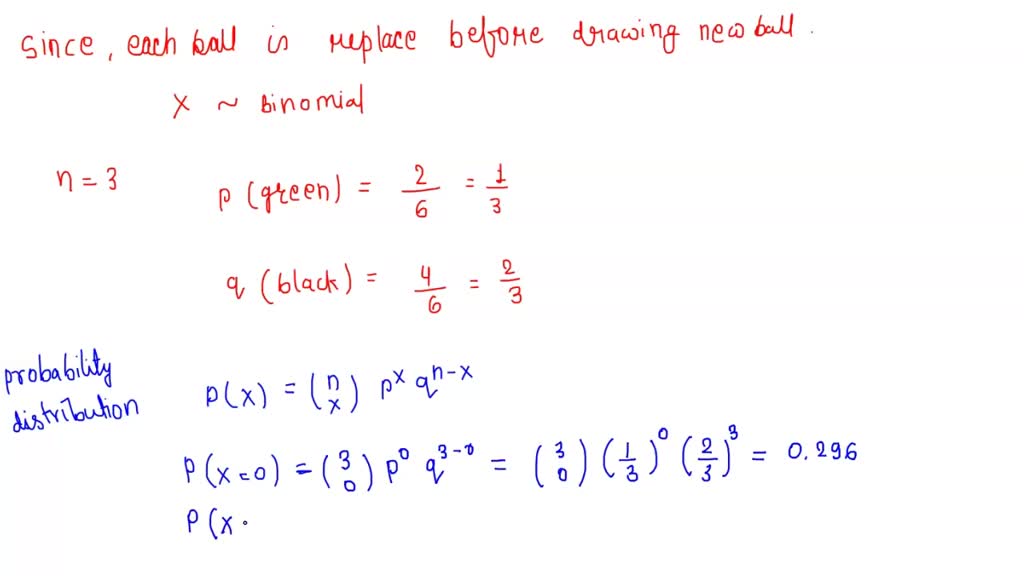 Since, each ball is replace before drawing new ball.
X ~ Binomial
n = 3
p (green) = 2/6 = 1/3
q (black) = 4/6 = 2/3
probability distribution
p(x) = (n x) p^x q^(n-x)
P(x=0) = (3 0) p^0 q^(3-0) = (3 0) (1/3)^0 (2/3)^3 = 0.296
P(x